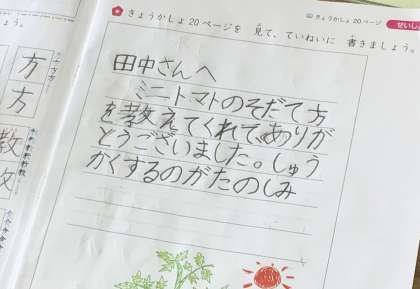 きょうかしょ20ページ せいしょ
きょうかしょ20ページを 見て、ていねいに 書きましょう。
み か
田中さんへ
ミニトマトのそだて方
を教えてくれて、ありが
とうございました。しゅう
かくするのがたのしみ
方
方
教